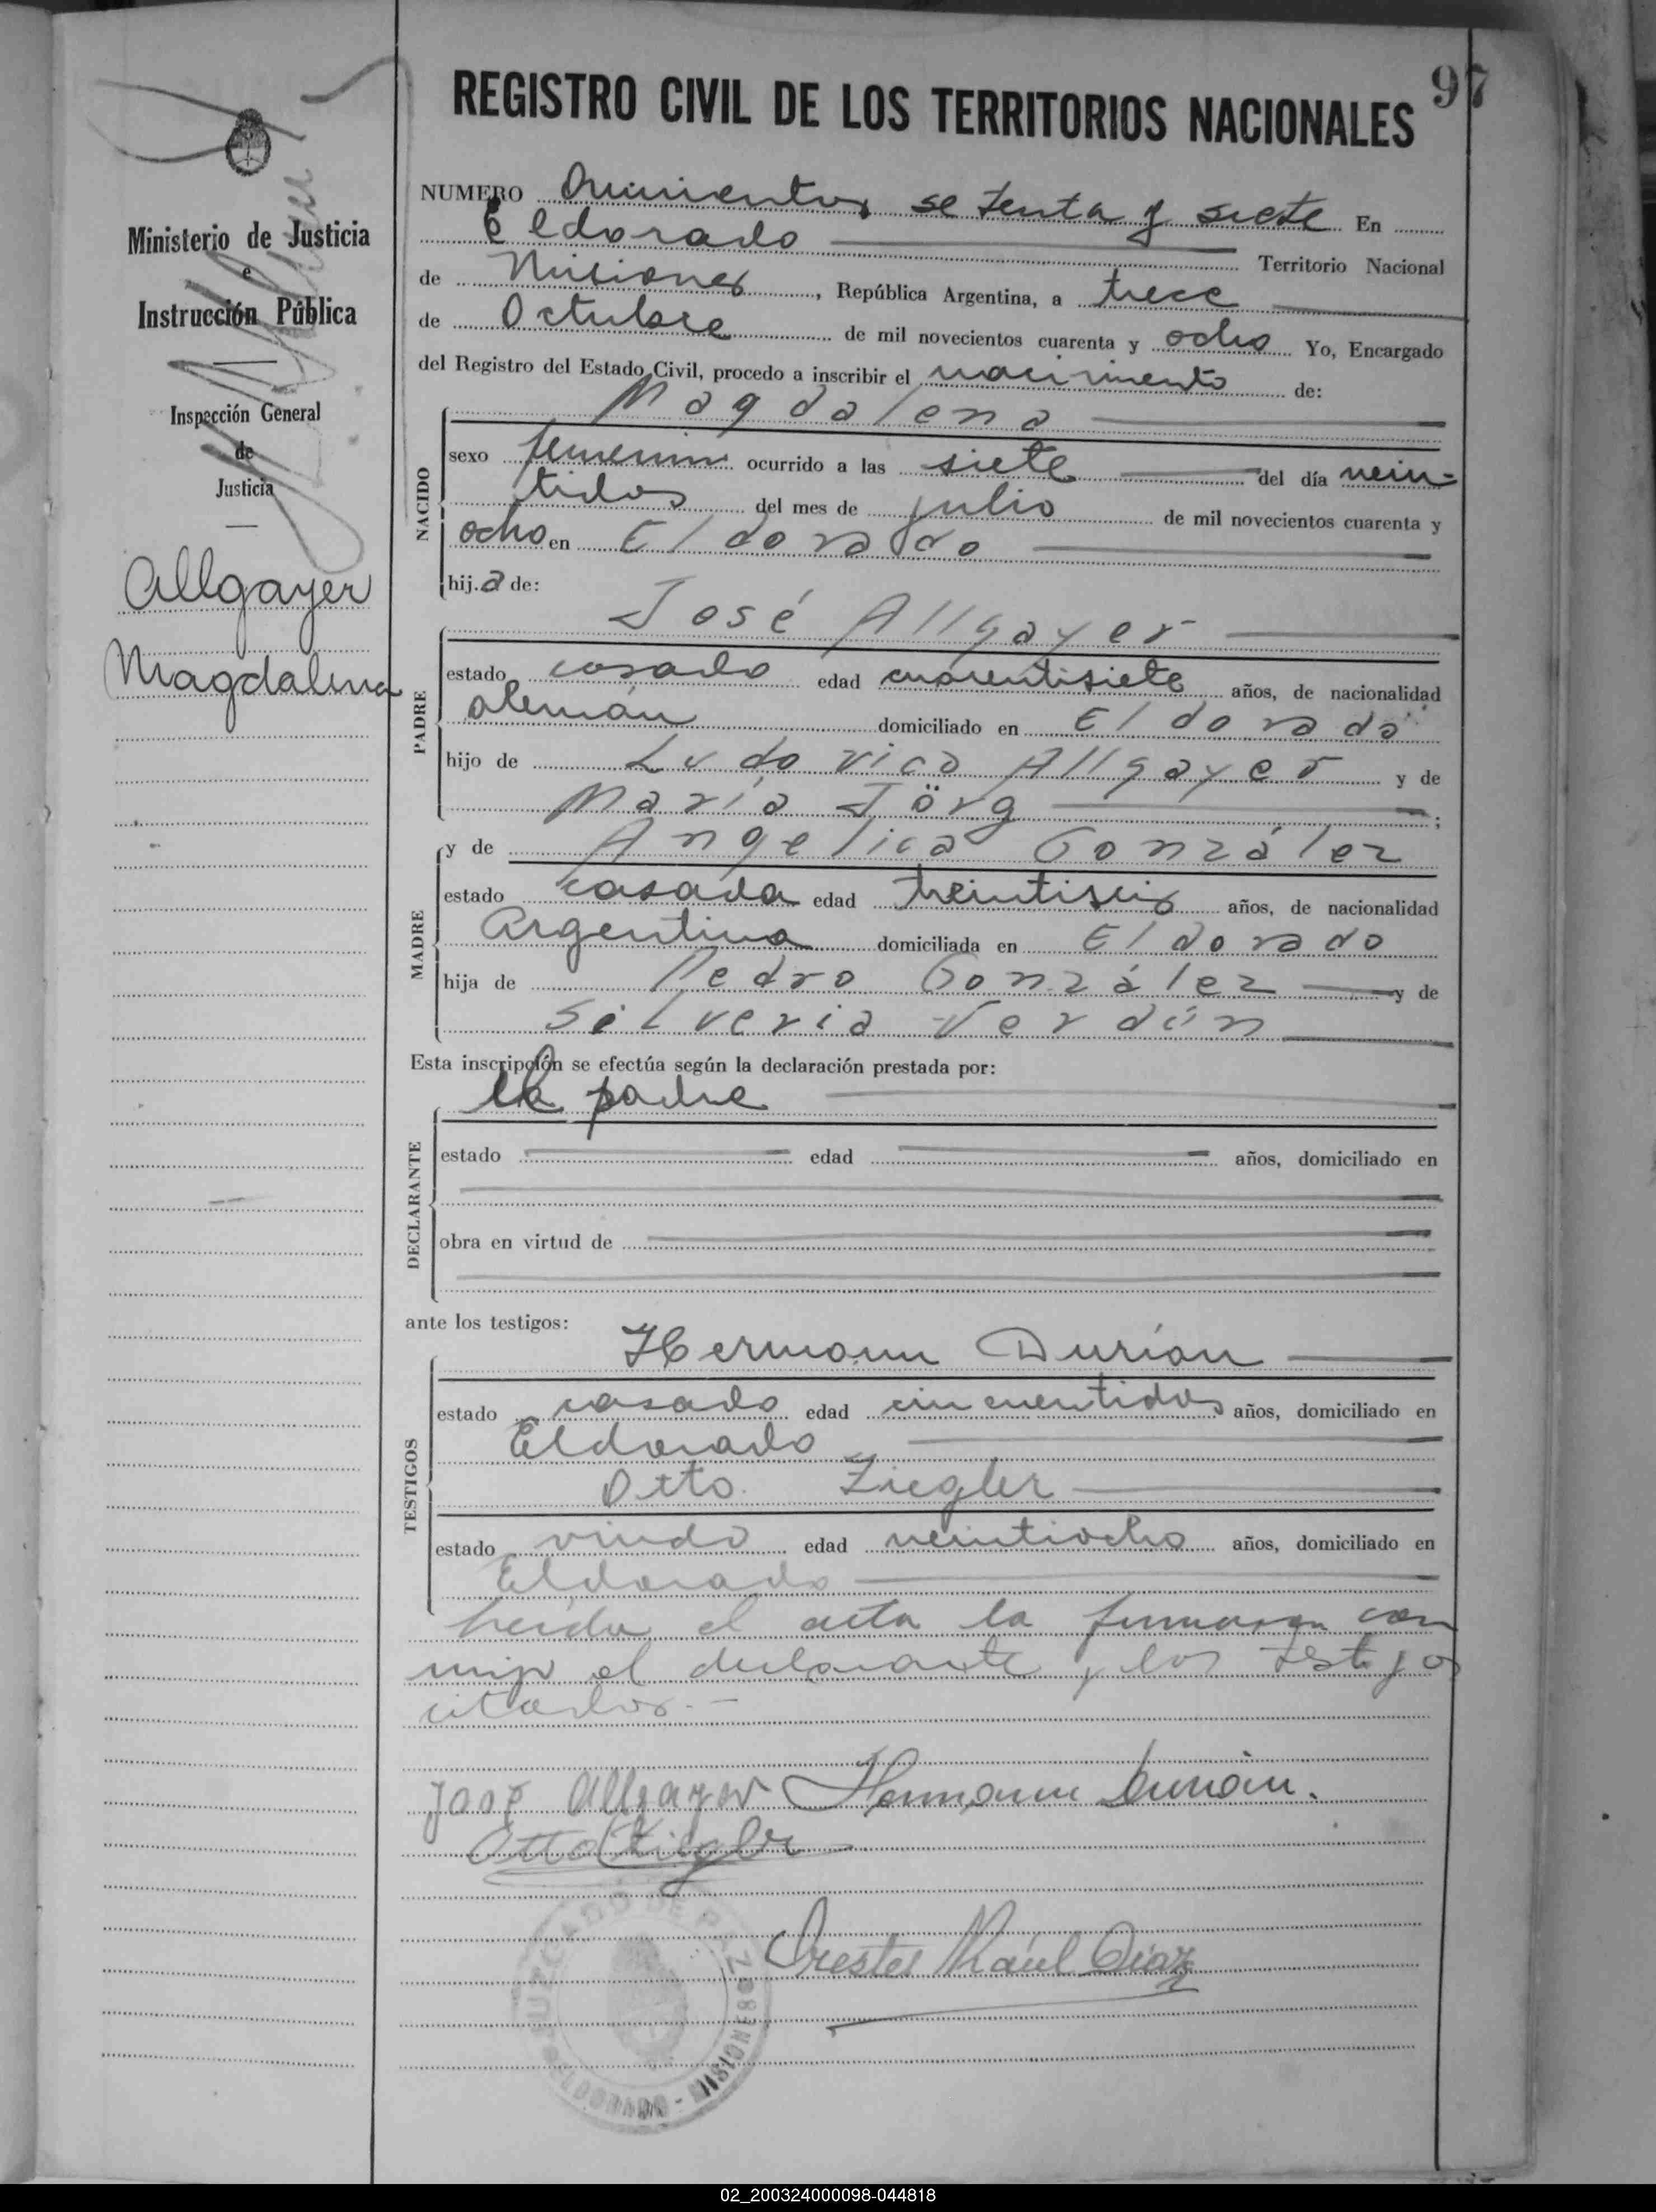 97
REGISTRO CIVIL DE LOS TERRITORIOS NACIONALES
Ministerio de Justicia
e
Instrucción Pública
Inspección General
de
Justicia
Allgayer
Magdalena
NUMERO Quinientos setenta y siete En
Eldorado Territorio Nacional
de Misiones, República Argentina, a trece
de Octubre de mil novecientos cuarenta y ocho Yo, Encargado
del Registro del Estado Civil, procedo a inscribir el nacimiento de:
NACIDO
Magdalena
sexo femenino ocurrido a las siete del día vein-
tidos del mes de julio de mil novecientos cuarenta y
ocho en Eldorado
hij.a de:
PADRE
José Allgayer
estado casado edad cuarentisiete años, de nacionalidad
alemán domiciliado en Eldorado
hijo de Ludovico Allgayer y de
María Jörg;
MADRE
y de Angelica González
estado casada edad treintiseis años, de nacionalidad
Argentina domiciliada en Eldorado
hija de Pedro González y de
Silveria Verdún
Esta inscripción se efectúa según la declaración prestada por:
DECLARANTE
el padre
estado edad años, domiciliado en
obra en virtud de
ante los testigos:
TESTIGOS
Hermann Durían
estado casado edad cincuentidos años, domiciliado en
Eldorado
Otto Ziegler
estado viudo edad veintiocho años, domiciliado en
Eldorado
Leída el acta la firmaron con
migo el declarante y los testigos
citados.-
José Allgayer Hermann Durian.
Otto Ziegler
Orestes Raúl Díaz
JUZGADO DE PAZ
ELDORADO - MISIONES
02_200324000098-044818